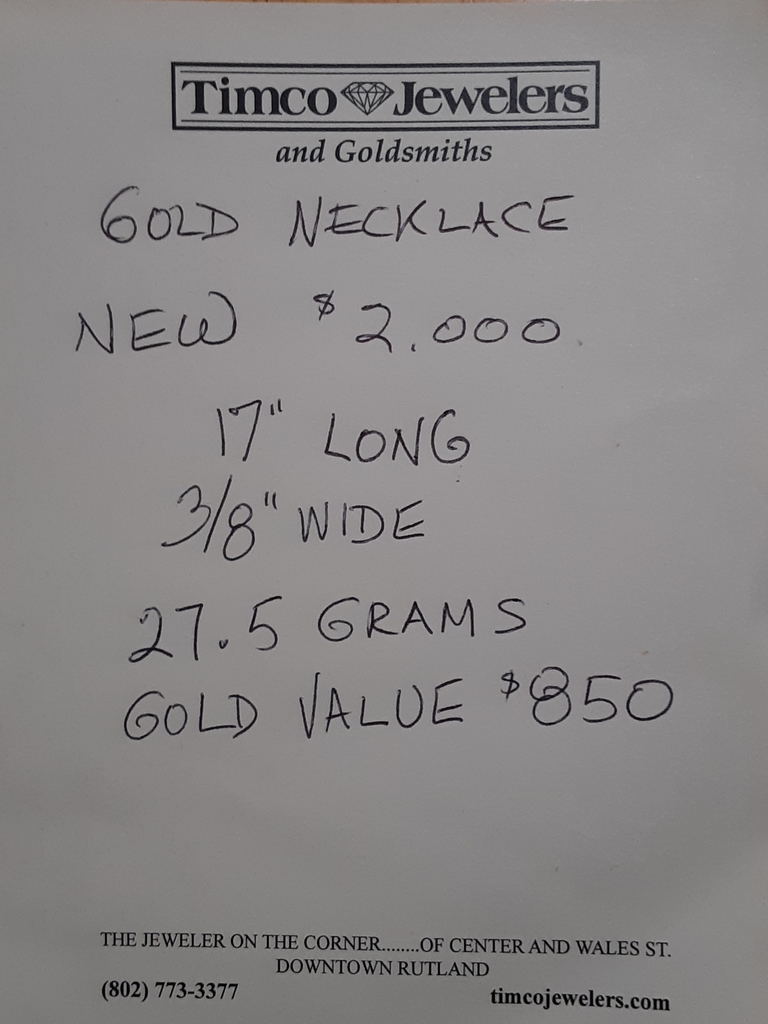 Timco Jewelers
and Goldsmiths
GOLD NECKLACE
NEW $2.000
17" LONG
3/8" WIDE
27.5 GRAMS
GOLD VALUE $850
THE JEWELER ON THE CORNER........OF CENTER AND WALES ST.
DOWNTOWN RUTLAND
(802) 773-3377 timcojewelers.com